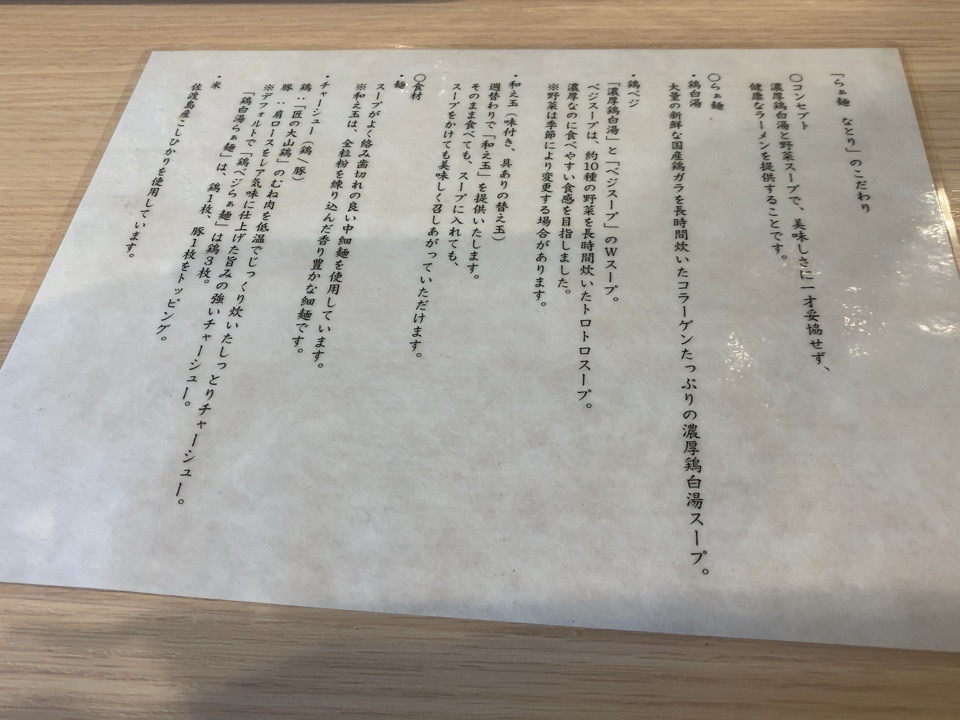 「らぁ麺　なとり」のこだわり
〇コンセプト
濃厚鶏白湯と野菜スープで、美味しさに一才妥協せず、
健康なラーメンを提供することです。
〇らぁ麺
・鶏白湯
大量の新鮮な国産鶏ガラを長時間炊いたコラーゲンたっぷりの濃厚鶏白湯スープ。
・鶏ベジ
「濃厚鶏白湯」と「ベジスープ」のWスープ。
ベジスープは、約10種の野菜を長時間炊いたトロトロスープ。
濃厚なのに食べやすい食感を目指しました。
※野菜は季節により変更する場合があります。
・和え玉（味付き、具ありの替え玉）
週替わりで「和え玉」を提供いたします。
そのまま食べても、スープに入れても、
スープをかけても美味しく召しあがっていただけます。
〇食材
・麺
スープがよく絡み歯切れの良い中細麺を使用しています。
※和え玉は、全粒粉を練り込んだ香り豊かな細麺です。
・チャーシュー（鶏／豚）
鶏：「匠の大山鶏」のむね肉を低温でじっくり炊いたしっとりチャーシュー。
豚：肩ロースをレア気味に仕上げた旨みの強いチャーシュー。
※デフォルトで「鶏ベジらぁ麺」は鶏3枚。
「鶏白湯らぁ麺」は、鶏1枚、豚1枚をトッピング。
・米
佐渡島産こしひかりを使用しています。